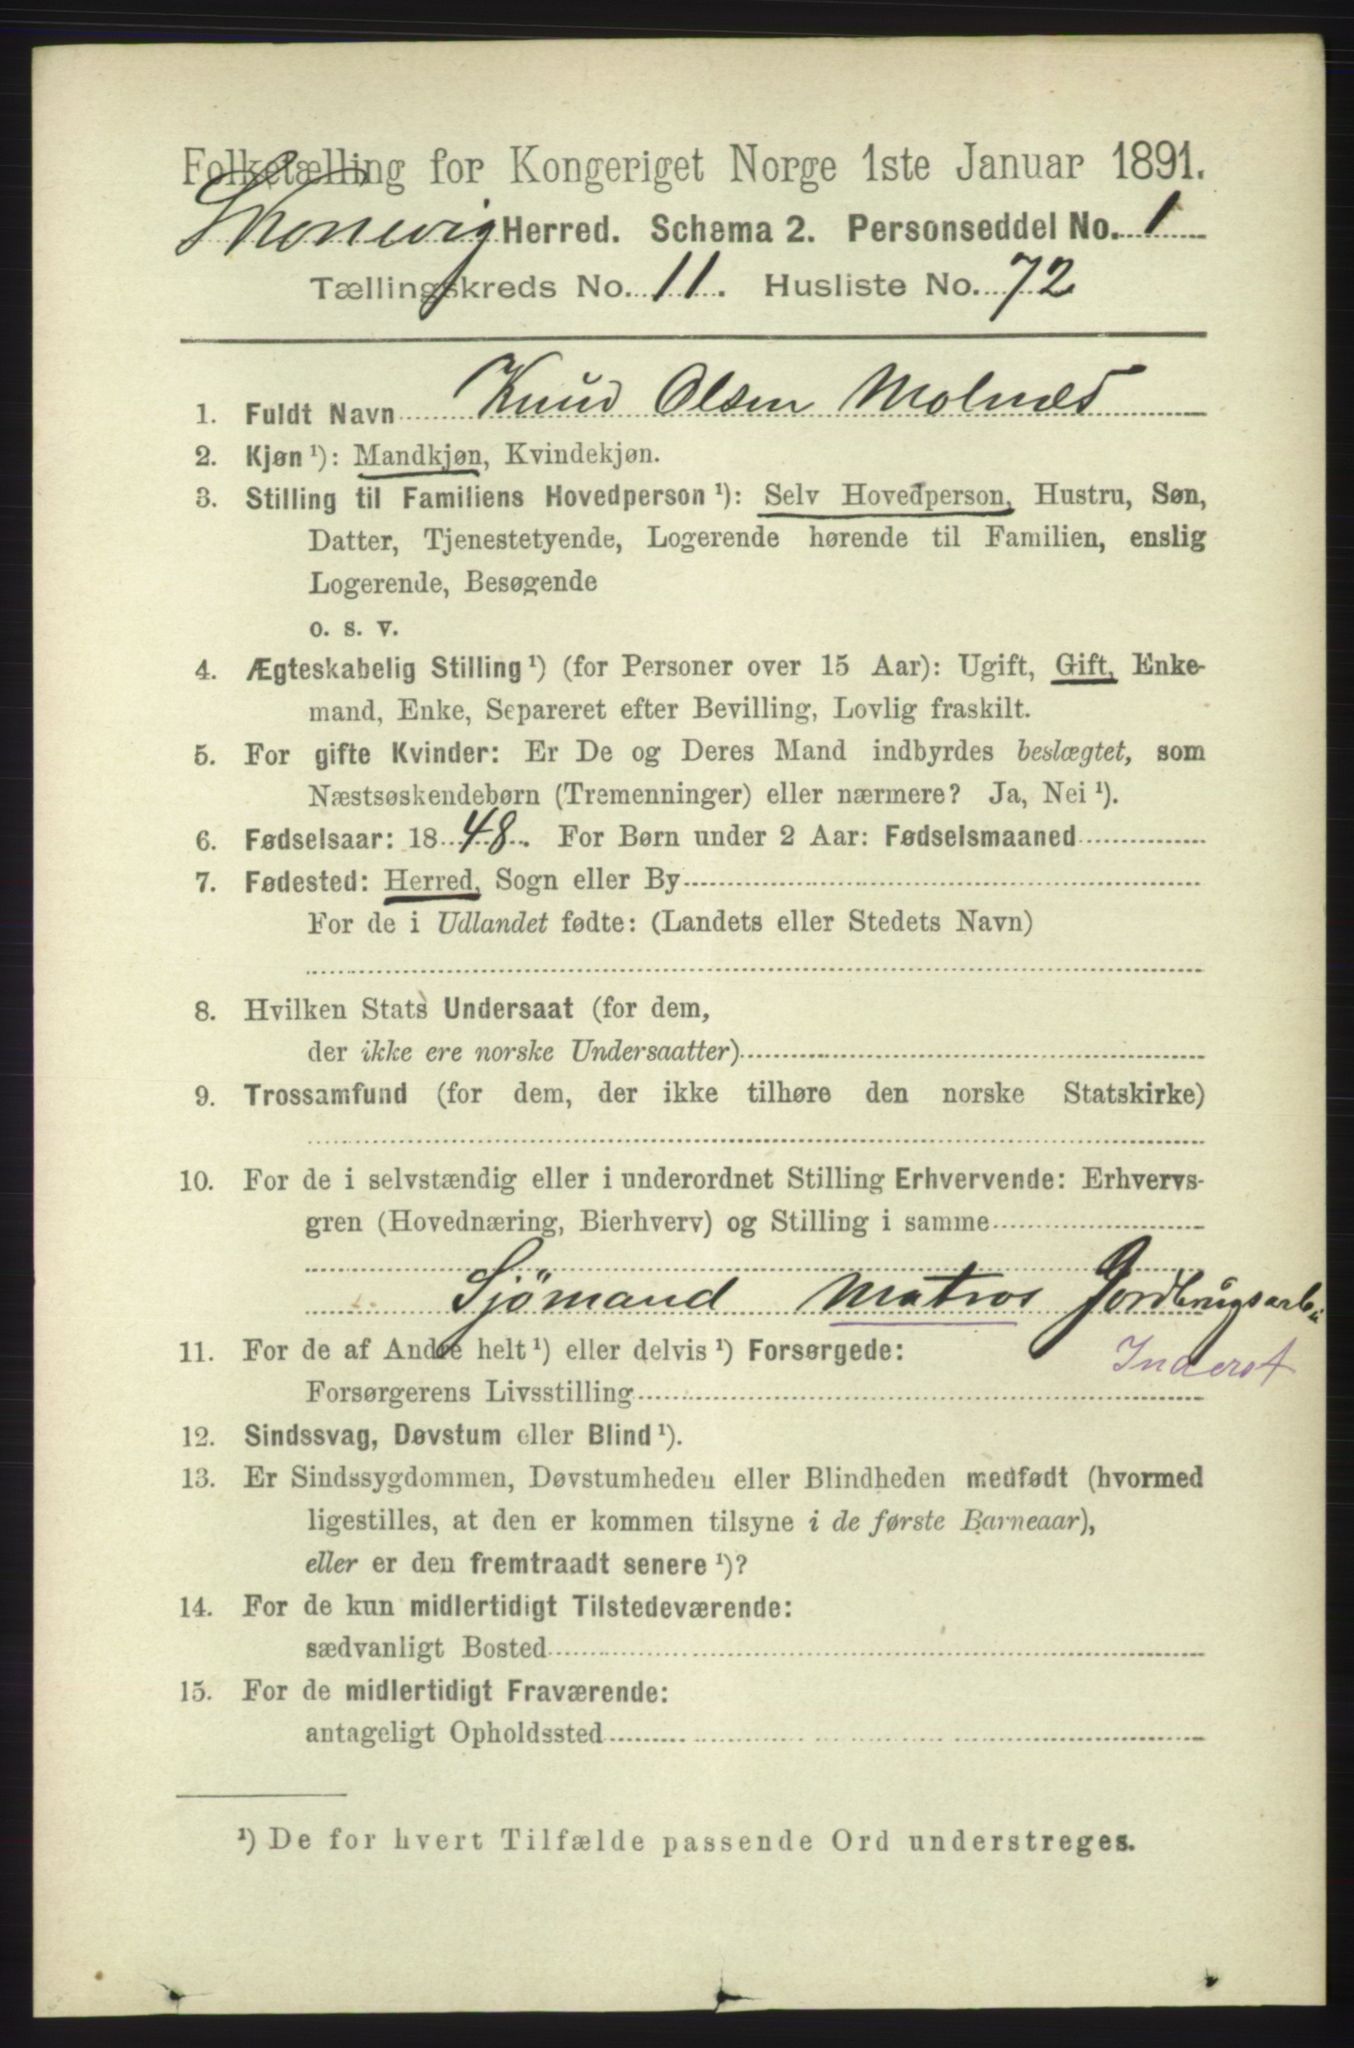 Folketælling for Kongeriget Norge 1ste Januar 1891.
Skonevig Herred. Schema 2. Personseddel No. 1
Tællingskreds No. 11. Husliste No. 72
1. Fuldt Navn Knud Olsen Molnes
2. Kjøn ¹): Mandkjøn, Kvindekjøn.
3. Stilling til Familiens Hovedperson ¹): Selv Hovedperson, Hustru, Søn,
Datter, Tjenestetyende, Logerende hørende til Familien, enslig
Logerende, Besøgende
o. s. v.
4. Ægteskabelig Stilling ¹) (for Personer over 15 Aar): Ugift, Gift, Enke-
mand, Enke, Separeret efter Bevilling, Lovlig fraskilt.
5. For gifte Kvinder: Er De og Deres Mand indbyrdes beslægtet, som
Næstsøskendebørn (Tremenninger) eller nærmere? Ja, Nei ¹).
6. Fødselsaar: 1848. For Børn under 2 Aar: Fødselsmaaned
7. Fødested: Herred, Sogn eller By
For de i Udlandet fødte: (Landets eller Stedets Navn)
8. Hvilken Stats Undersaat (for dem,
der ikke ere norske Undersaatter)
9. Trossamfund (for dem, der ikke tilhøre den norske Statskirke)
10. For de i selvstændig eller i underordnet Stilling Erhvervende: Erhvervs-
gren (Hovednæring, Bierhverv) og Stilling i samme
Sjömand Matros Jordbrugsarb
11. For de af Andre helt ¹) eller delvis ¹) Forsørgede:
Forsørgerens Livsstilling
12. Sindssvag, Døvstum eller Blind ¹).
13. Er Sindssygdommen, Døvstumheden eller Blindheden medfødt (hvormed
ligestilles, at den er kommen tilsyne i de første Barneaar),
eller er den fremtraadt senere ¹)?
14. For de kun midlertidigt Tilstedeværende:
sædvanligt Bosted
15. For de midlertidigt Fraværende:
antageligt Opholdssted
¹) De for hvert Tilfælde passende Ord understreges.